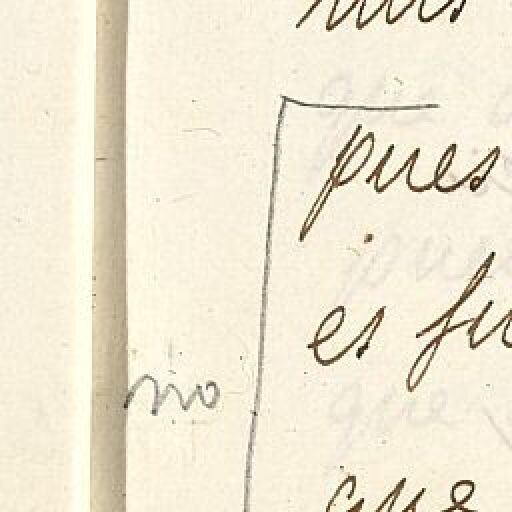 pues
es fu
no
que